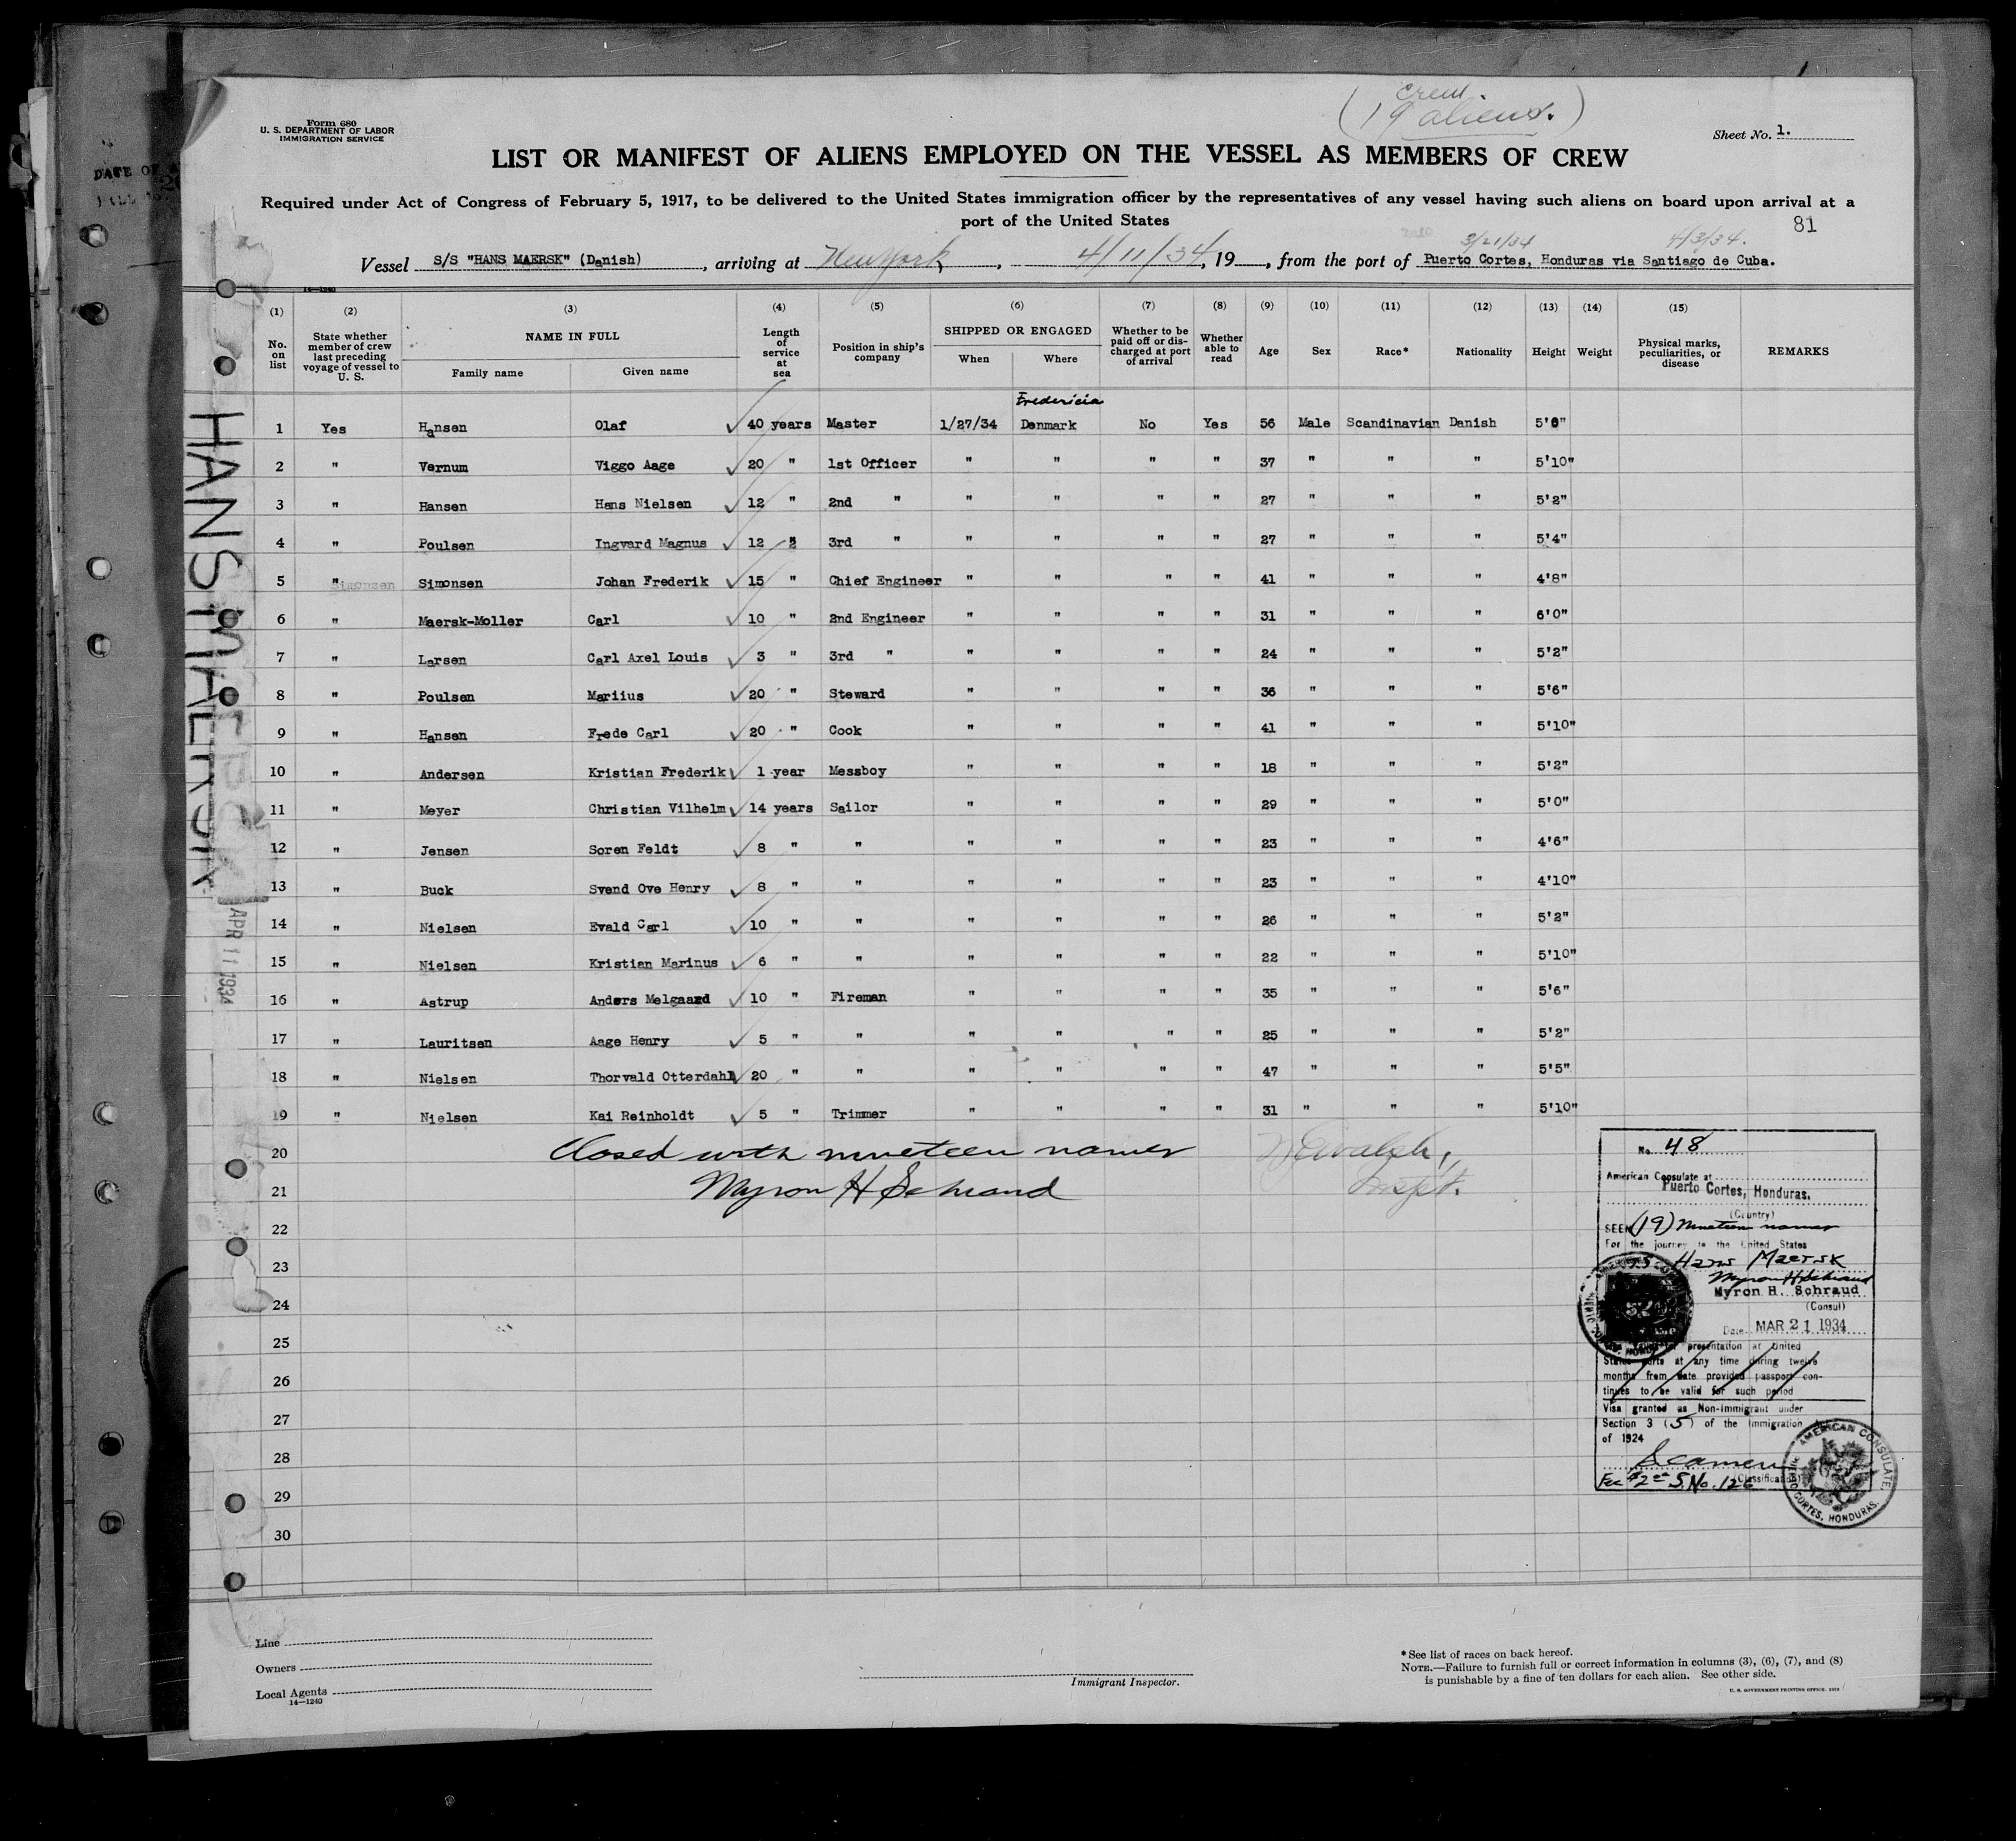 ( Crew.
19 aliens. )
Form 680
U. S. DEPARTMENT OF LABOR
IMMIGRATION SERVICE
Sheet No. 1.
LIST OR MANIFEST OF ALIENS EMPLOYED ON THE VESSEL AS MEMBERS OF CREW
Required under Act of Congress of February 5, 1917, to be delivered to the United States immigration officer by the representatives of any vessel having such aliens on board upon arrival at a
port of the United States
81
3/21/34 4/3/34.
Vessel S/S "HANS MAERSK" (Danish), arriving at New York, 4/11/34, 19, from the port of Puerto Cortes, Honduras via Santiago de Cuba.
14—1240
(1) (2) (3) (4) (5) (6) (7) (8) (9) (10) (11) (12) (13) (14) (15)
No. on list State whether member of crew last preceding voyage of vessel to U. S. NAME IN FULL Family name Given name Length of service at sea Position in ship's company SHIPPED OR ENGAGED When Where Whether to be paid off or discharged at port of arrival Whether able to read Age Sex Race* Nationality Height Weight Physical marks, peculiarities, or disease REMARKS
Fredericia
1 Yes Hansen Olaf ✓ 40 years Master 1/27/34 Denmark No Yes 56 Male Scandinavian Danish 5'6"
2 " Vernum Viggo Aage ✓ 20 " 1st Officer " " " " 37 " " " 5'10"
3 " Hansen Hans Nielsen ✓ 12 " 2nd " " " " " 27 " " " 5'2"
4 " Poulsen Ingvard Magnus ✓ 12 " 3rd " " " " " 27 " " " 5'4"
5 " Simonsen Johan Frederik ✓ 15 " Chief Engineer " " " " 41 " " " 4'8"
6 " Maersk-Moller Carl ✓ 10 " 2nd Engineer " " " " 31 " " " 6'0"
7 " Larsen Carl Axel Louis ✓ 3 " 3rd " " " " " 24 " " " 5'2"
8 " Poulsen Mariius ✓ 20 " Steward " " " " 36 " " " 5'6"
9 " Hansen Frede Carl ✓ 20 " Cook " " " " 41 " " " 5'10"
10 " Andersen Kristian Frederik ✓ 1 year Messboy " " " " 18 " " " 5'2"
11 " Meyer Christian Vilhelm ✓ 14 years Sailor " " " " 29 " " " 5'0"
12 " Jensen Soren Feldt ✓ 8 " " " " " " 23 " " " 4'6"
13 " Buck Svend Ove Henry ✓ 8 " " " " " " 23 " " " 4'10"
14 " Nielsen Evald Carl ✓ 10 " " " " " " 26 " " " 5'2"
15 " Nielsen Kristian Marinus ✓ 6 " " " " " " 22 " " " 5'10"
16 " Astrup Anders Melgaard ✓ 10 " Fireman " " " " 35 " " " 5'6"
17 " Lauritsen Aage Henry ✓ 5 " " " " " " 25 " " " 5'2"
18 " Nielsen Thorvald Otterdahl ✓ 20 " " " " " " 47 " " " 5'5"
19 " Nielsen Kai Reinholdt ✓ 5 " Trimmer " " " " 31 " " " 5'10"
20 Closed with nineteen names
21 Myron H Schraud Inspt.
22
23
24
25
26
27
28
29
30
HANS MAERSK
APR 11 1934
No. 48
American Consulate at
Puerto Cortes, Honduras.
(Country)
SEEN (19) Nineteen names
For the journey to the United States
Hans Maersk
Myron H Schraud
Myron H. Schraud
(Consul)
Date MAR 21 1934
presentation at United
States ports at any time during twelve
months from date provided passport con-
tinues to be valid for such period
Visa granted as Non-Immigrant under
Section 3 (5) of the Immigration
of 1924
Seamen
(Classification)
Fee $2 S. No. 126
AMERICAN CONSULATE, PUERTO CORTES, HONDURAS.
Line
Owners
Local Agents
14—1240
Immigrant Inspector.
*See list of races on back hereof.
NOTE.—Failure to furnish full or correct information in columns (3), (6), (7), and (8)
is punishable by a fine of ten dollars for each alien. See other side.